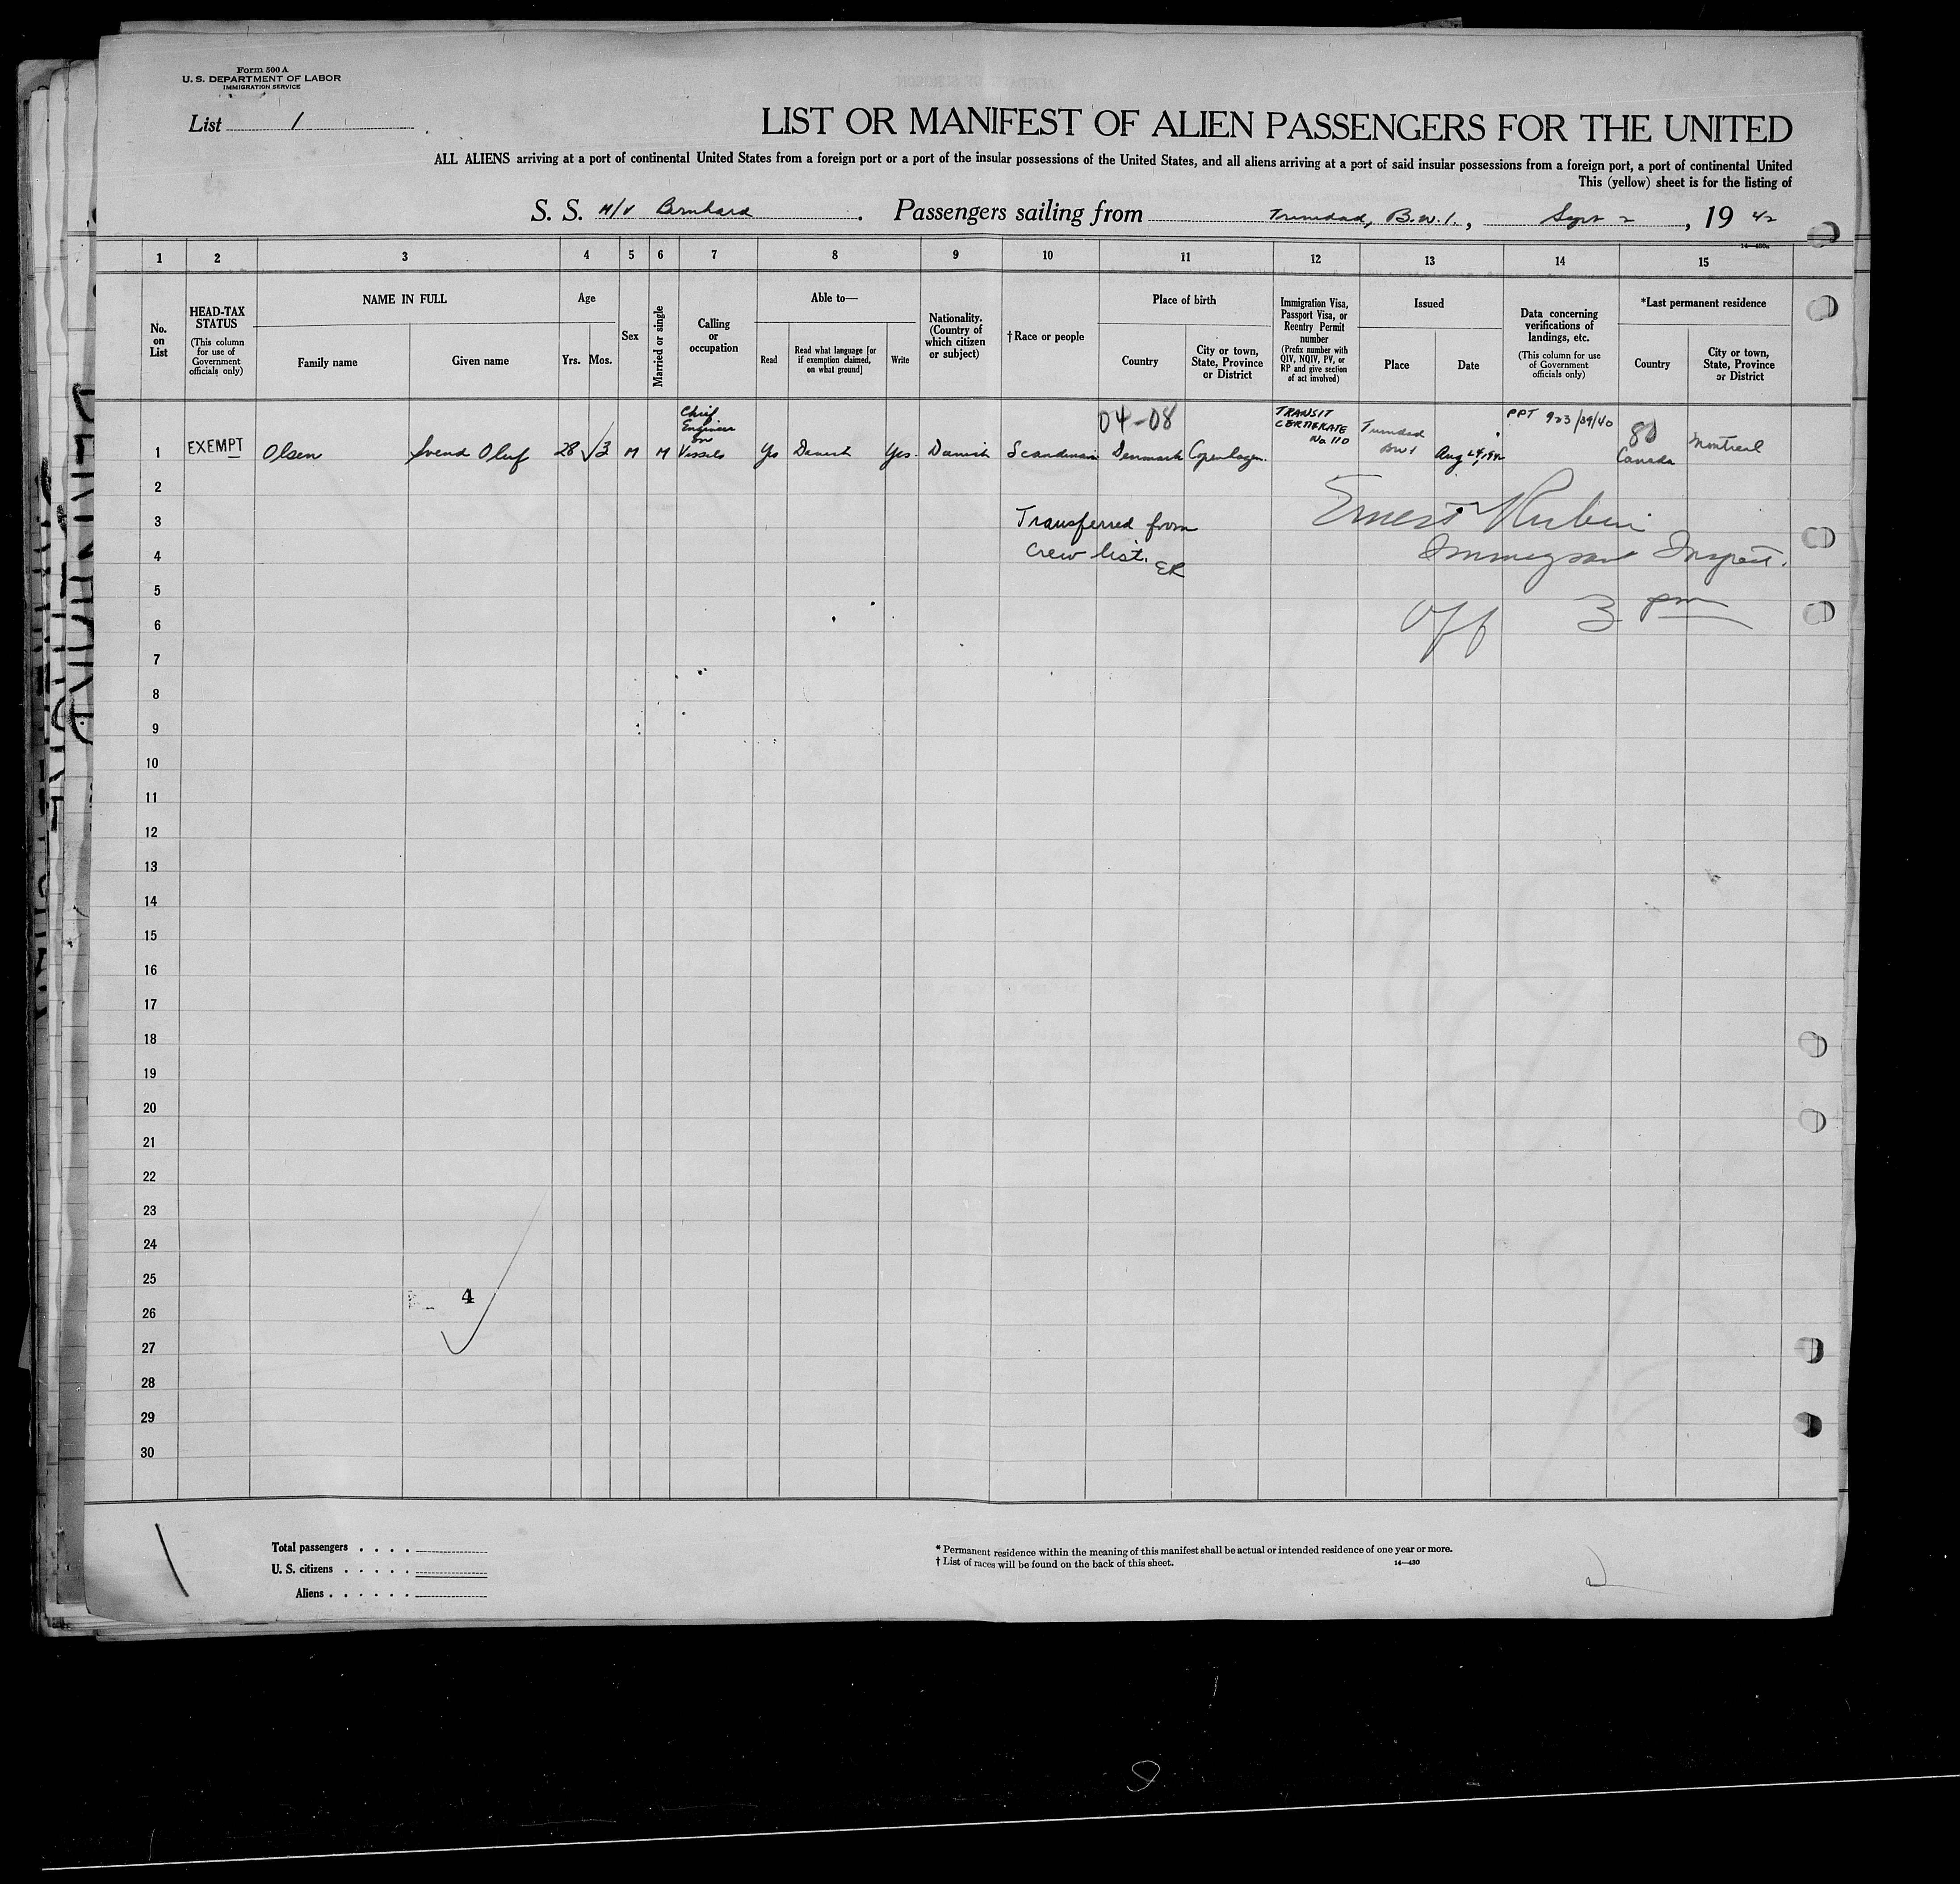 Form 500 A
U. S. DEPARTMENT OF LABOR
IMMIGRATION SERVICE
List 1
LIST OR MANIFEST OF ALIEN PASSENGERS FOR THE UNITED
ALL ALIENS arriving at a port of continental United States from a foreign port or a port of the insular possessions of the United States, and all aliens arriving at a port of said insular possessions from a foreign port, a port of continental United
This (yellow) sheet is for the listing of
S. S. M/V Bernhard . Passengers sailing from Trinidad, B.W.I., Sept 2, 19 42
14—430a
1 2 3 4 5 6 7 8 9 10 11 12 13 14 15
No. on List
HEAD-TAX STATUS
(This column for use of Government officials only)
NAME IN FULL
Family name
Given name
Age
Yrs.
Mos.
Sex
Married or single
Calling or occupation
Able to—
Read
Read what language [or if exemption claimed, on what ground]
Write
Nationality. (Country of which citizen or subject)
†Race or people
Place of birth
Country
City or town, State, Province or District
Immigration Visa, Passport Visa, or Reentry Permit number
(Prefix number with QIV, NQIV, PV, or RP and give section of act involved)
Issued
Place
Date
Data concerning verifications of landings, etc.
(This column for use of Government officials only)
*Last permanent residence
Country
City or town, State, Province or District
1 EXEMPT Olsen Svend Oluf 28 3 M M Chief Engineer on Vessels Yes Danish Yes. Danish Scandinavian 04-08 Denmark Copenhagen. TRANSIT CERTIFICATE No. 110 Trinidad BWI Aug 24, 1942 PPT 923/39/40 80 Canada Montreal
2
3 Transferred from Ernest Rubin
4 crew list. ER Immigrant Inspect.
5
6 Off 3 pm
7
8
9
10
11
12
13
14
15
16
17
18
19
20
21
22
23
24
25
4
26
27
28
29
30
Total passengers . . . .
U. S. citizens . . . . .
Aliens . . . . . .
* Permanent residence within the meaning of this manifest shall be actual or intended residence of one year or more.
† List of races will be found on the back of this sheet.
14—430